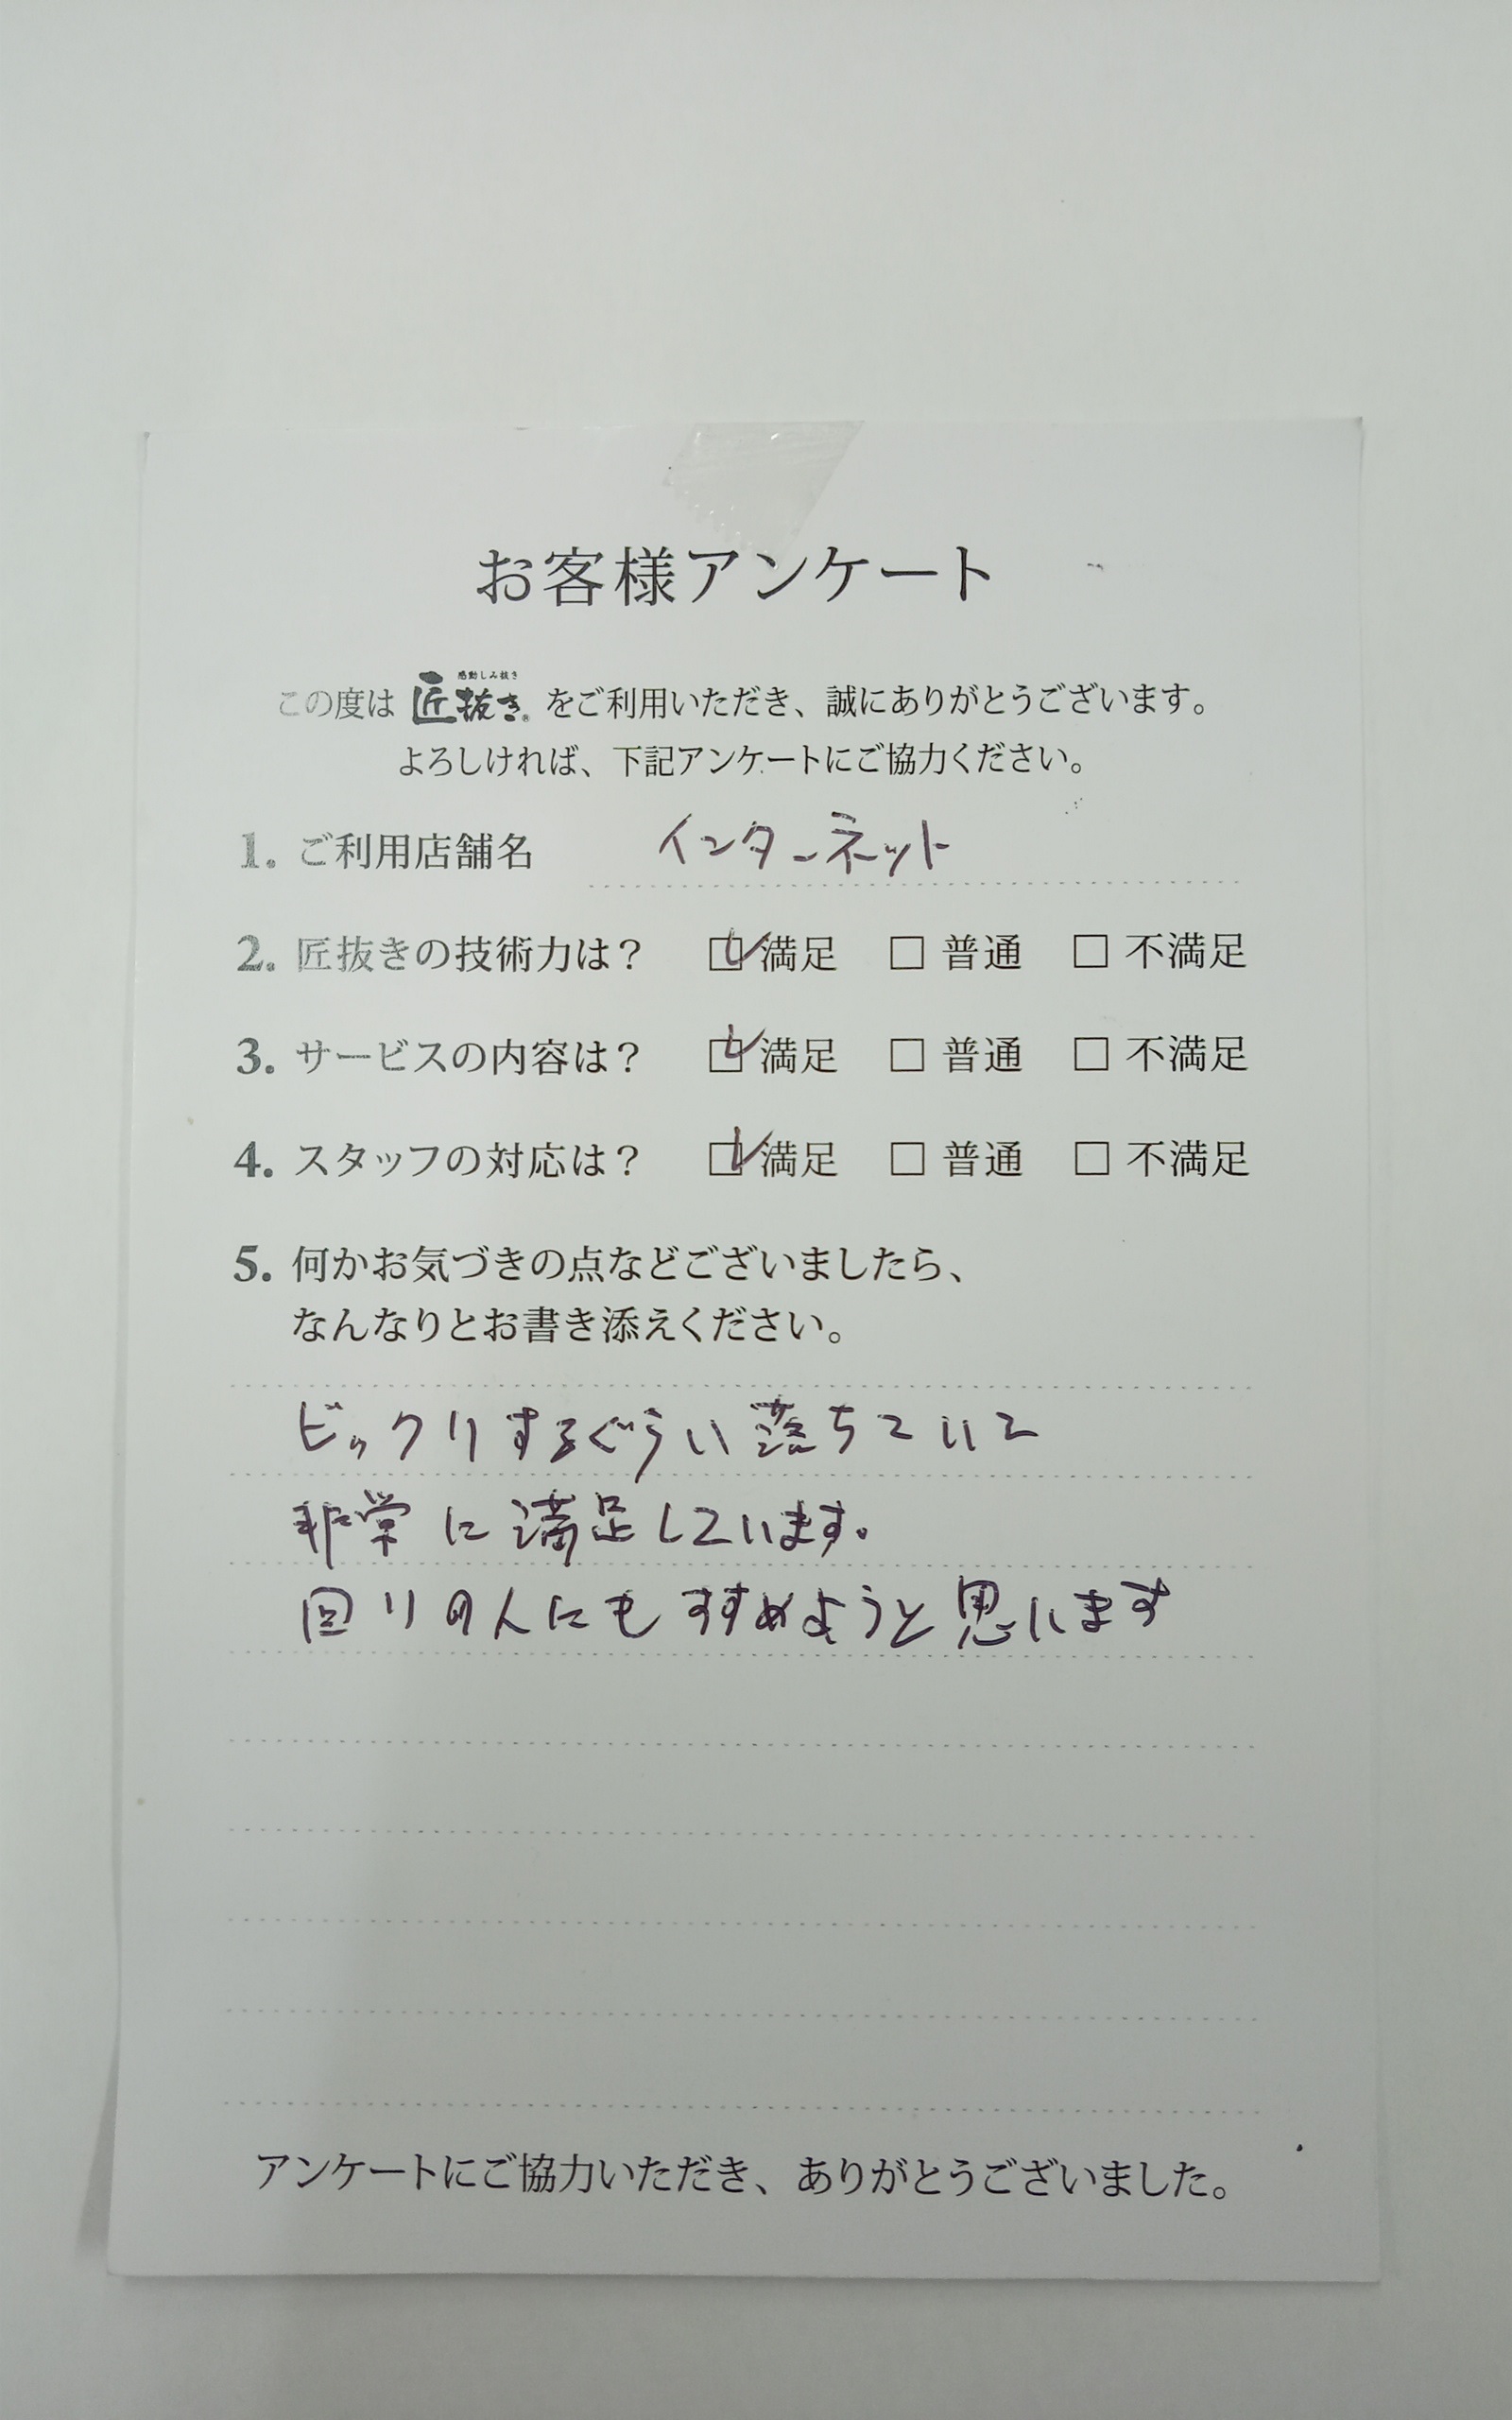 お客様アンケート
感動しみ抜き
この度は 匠抜き® をご利用いただき、誠にありがとうございます。
よろしければ、下記アンケートにご協力ください。
1. ご利用店舗名 インターネット
2. 匠抜きの技術力は? ☑ 満足 □ 普通 □ 不満足
3. サービスの内容は? ☑ 満足 □ 普通 □ 不満足
4. スタッフの対応は? ☑ 満足 □ 普通 □ 不満足
5. 何かお気づきの点などございましたら、
なんなりとお書き添えください。
ビックリするぐらい落ちていて
非常に満足しています。
回りの人にもすすめようと思います
アンケートにご協力いただき、ありがとうございました。